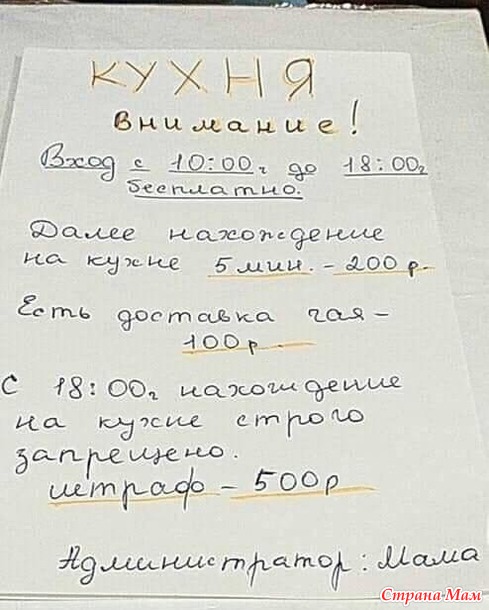 КУХНЯ
Внимание!
Вход с 10:00г до 18:00г
бесплатно.
Далее нахождение
на кухне 5 мин. - 200 р.
Есть доставка чая -
100 р.
С 18:00г нахождение
на кухне строго
запрещено.
штраф - 500 р
Администратор: Мама
Страна Мам